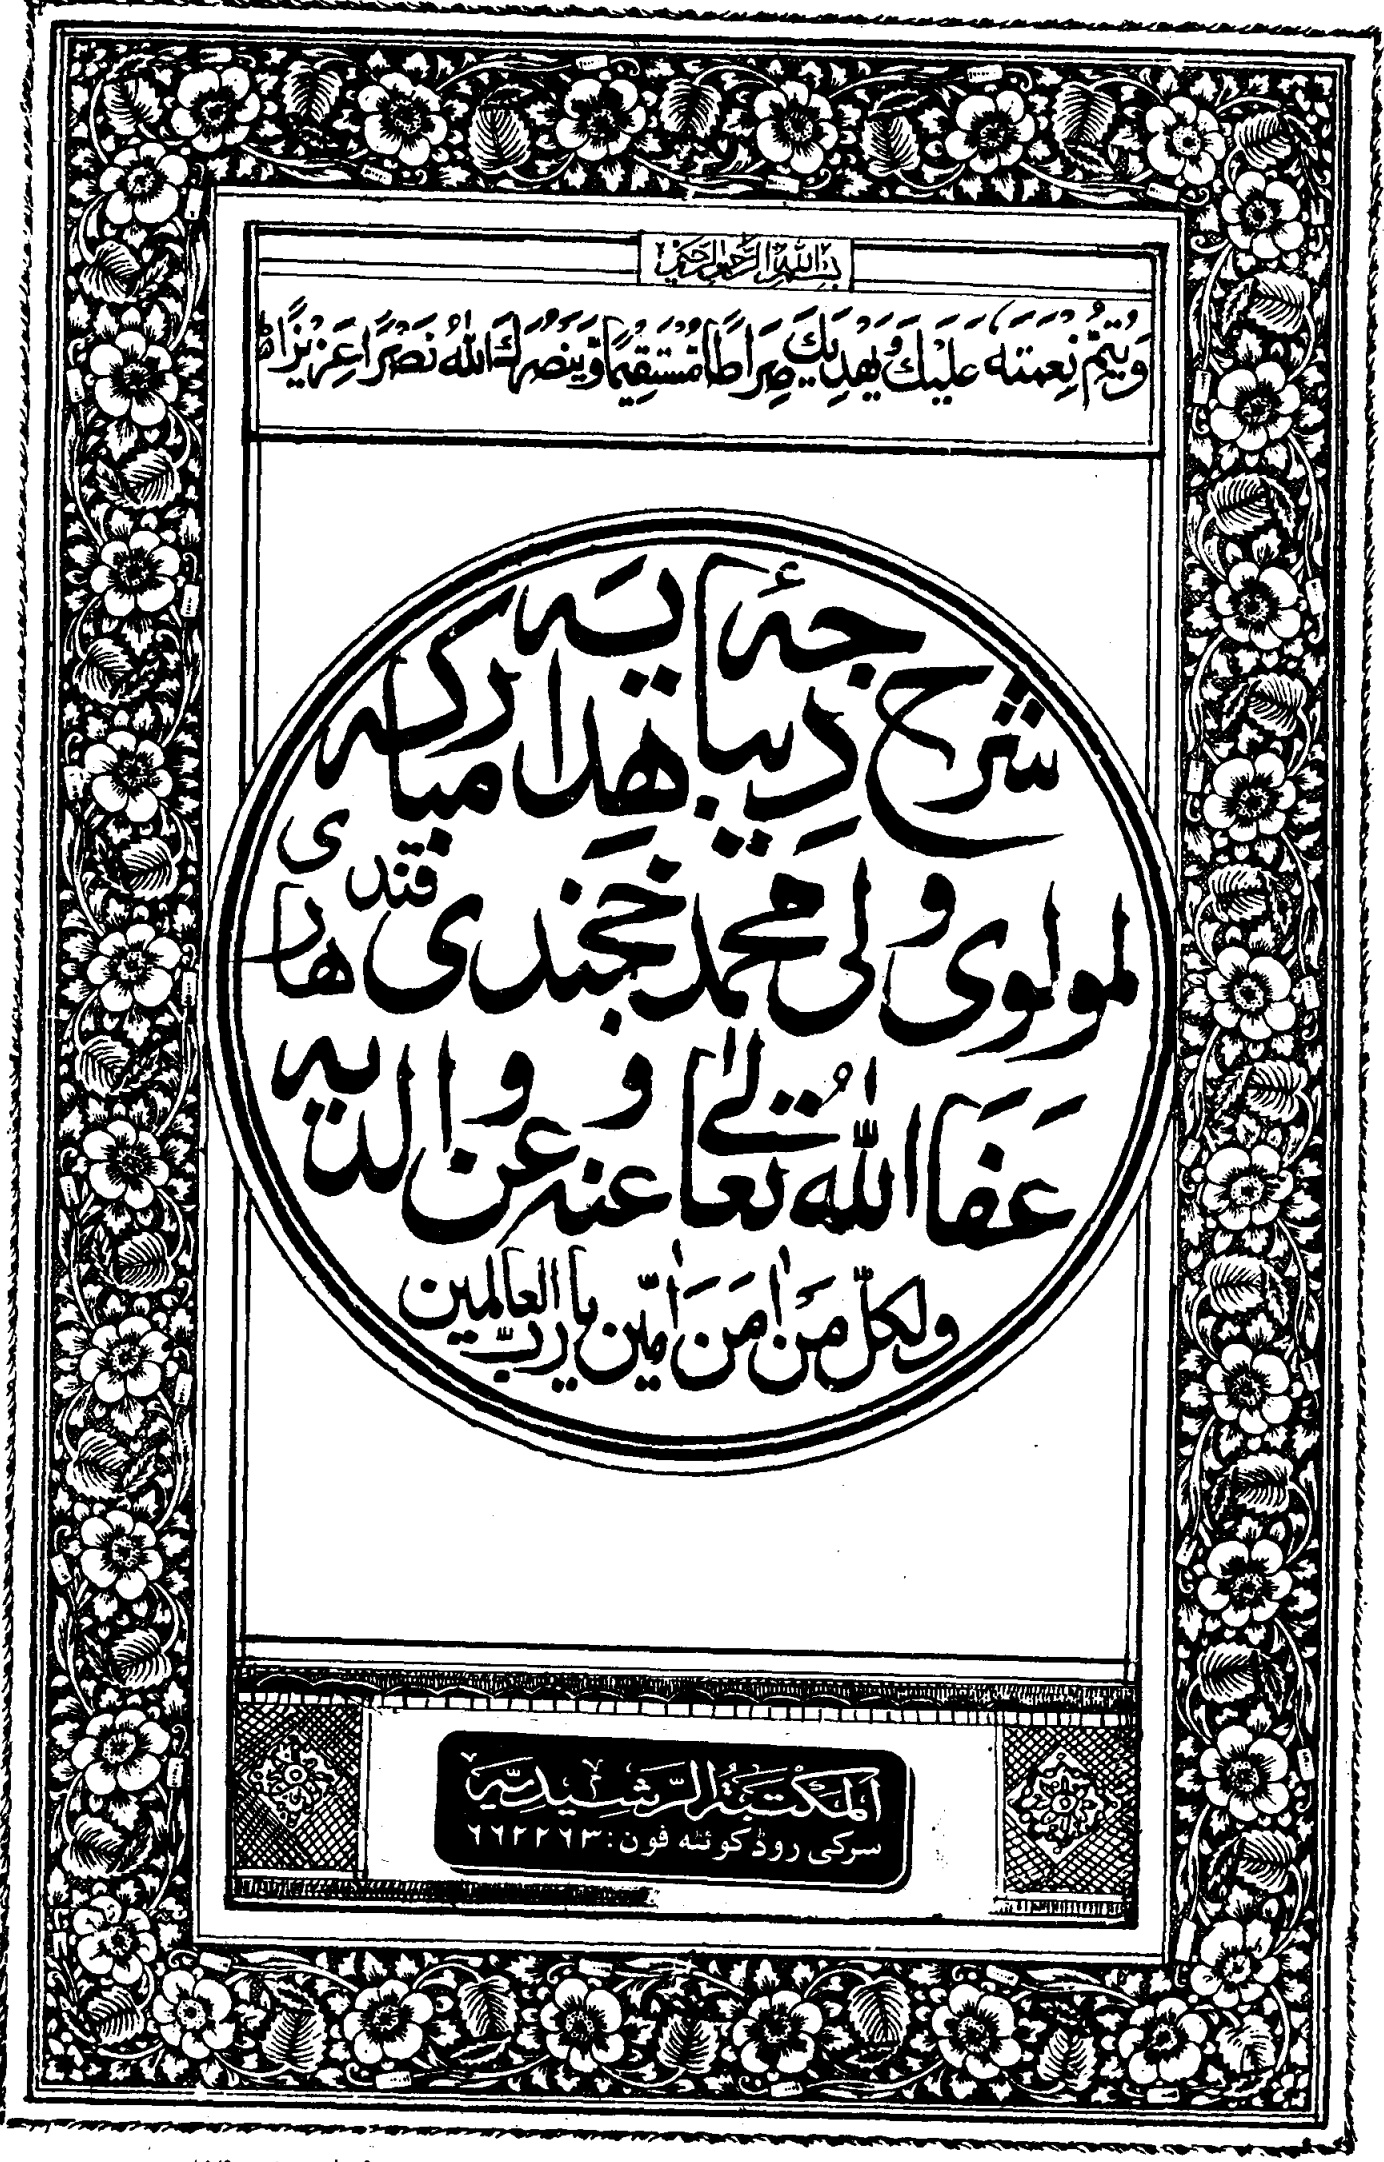 بسم الله الرحمن الرحيم
وَيُتِمَّ نِعْمَتَهُ عَلَيْكَ وَيَهْدِيَكَ صِرَاطًا مُّسْتَقِيمًا وَّيَنْصُرَكَ اللهُ نَصْرًا عَزِيزًا
شرح ديباجۀ هداية مباركه
لمولوى ولى محمد خجندى قندهارى
عَفَا اللهُ تعالىٰ عنه و عن والديه
ولكلّ مَنْ اٰمَنَ اٰمّين يا ربّ العالمين
اَلمكتبةُ الرّشيديّه
سرکی روڈ کوئٹه فون: ۶۶۲۲۶۳